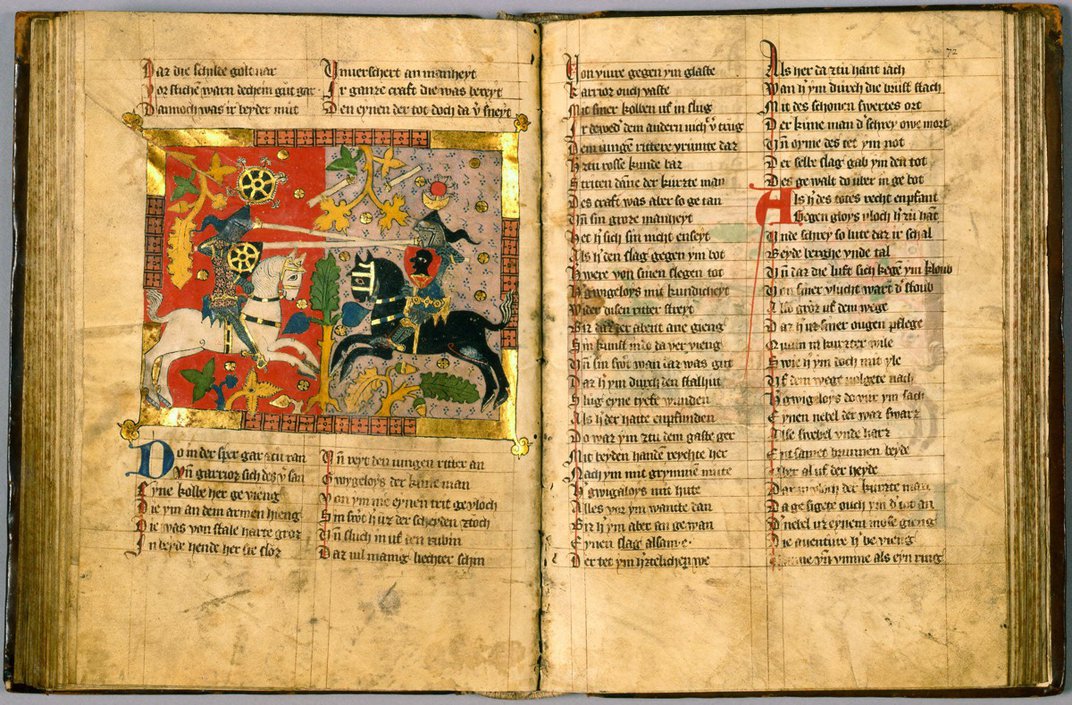 Dar die schilde golt var
Vor stiche warn dechein gut gar
Dannoch was ir beyder mut
Vnuerschert an manheyt
Ir ganze craft die was bereyt
Den eynen der tot doch da v' sneyt
Do in der sper gar zcu ran
Vn̄ garrioz sich des v' san
Eyne kolbe her ge vieng
Die ym an dem armen hieng
Die was von stale harte groz
In beyde hende her sie sloz
Vn̄ reyt den iungen ritter an
Gwygeloys der kune man
Von ym me eynen trit geyloch
Sin swt h' uz der scheyden ztoch
Vn̄ sluch in uf den rubin
Dar vil manig liechter schin
72
Von viure gegen ym glaste
Karrioz ouch vaste
Mit siner kolben uf in slug
Ir dewed' dem andern nich v' trug
Dem iunge rittere yrunte dar
H' zcu rosse kunde bar
Striten dāne der kurzte man
Des craft was aber so ge tan
Vn̄ sin groze manheyt
Het h' sich sin nicht enseyt
Als h' den slag gegen ym bot
H' were von sinen slegen tot
H' gwigeloys mit kundicheyt
Wider disen ritter streyt
Biz daz der abent ane gieng
Sin kunst in do ver vieng
Vn̄ sin swt wan iz was gut
Dar h' ym durch den stalhut
Slug eyne tyefe wunden
Als h' der hatte enpfunden
Do war ym zcu dem gaste ger
Mit beyden handē reychte her
Nach ym mit grymme mute
H' gwigaloys mit hute
Alles vor ym wancte dan
Biz h' ym aber an ge wan
Eynen slag alsam e
Der tet ym h'ztelichen we
Als her da zcu hant sach
Wan h' ym durch die brust stach
Mit des schonen swertes ort
Der kune man d' schrey owe mort
Vn̄ oyme des tet ym not
Der selbe slag gab ym den tot
Des ge walt do uber in ge bot
Als h' des totes recht enpfant
Gegen gloys vloch h' zu hāt
Vnde schrey so lute daz ir schal
Beyde berghe vnde tal
Vn̄ daz die luft sich kegē ym kloub
Von siner vlucht wart d' stoub
Also groz uf dem wege
Daz h' uz siner ougen pflege
Quam in kurtzer wile
Swie h' ym doch mit yle
Vf dem wege volgete nach
H' gwigaloys do vur ym sach
Eynen nebel der war swarz
Also swebel vnde harz
Ent samet brunnen beyde
Uber al uf der heyde
Dar inslom der kurzte man
Da ge sigete ouch ym d' tot an
D' nebel uz eynem mose gieng
Die auenture h' be vieng
Vmme vn̄ ymme als eyn ring